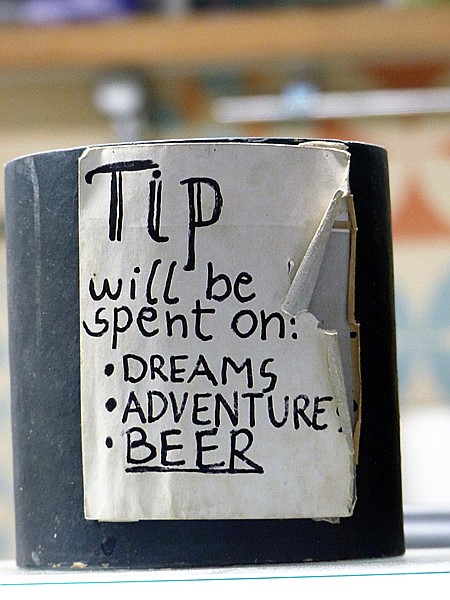 Tip
will be
spent on:
• DREAMS
• ADVENTURE
• BEER